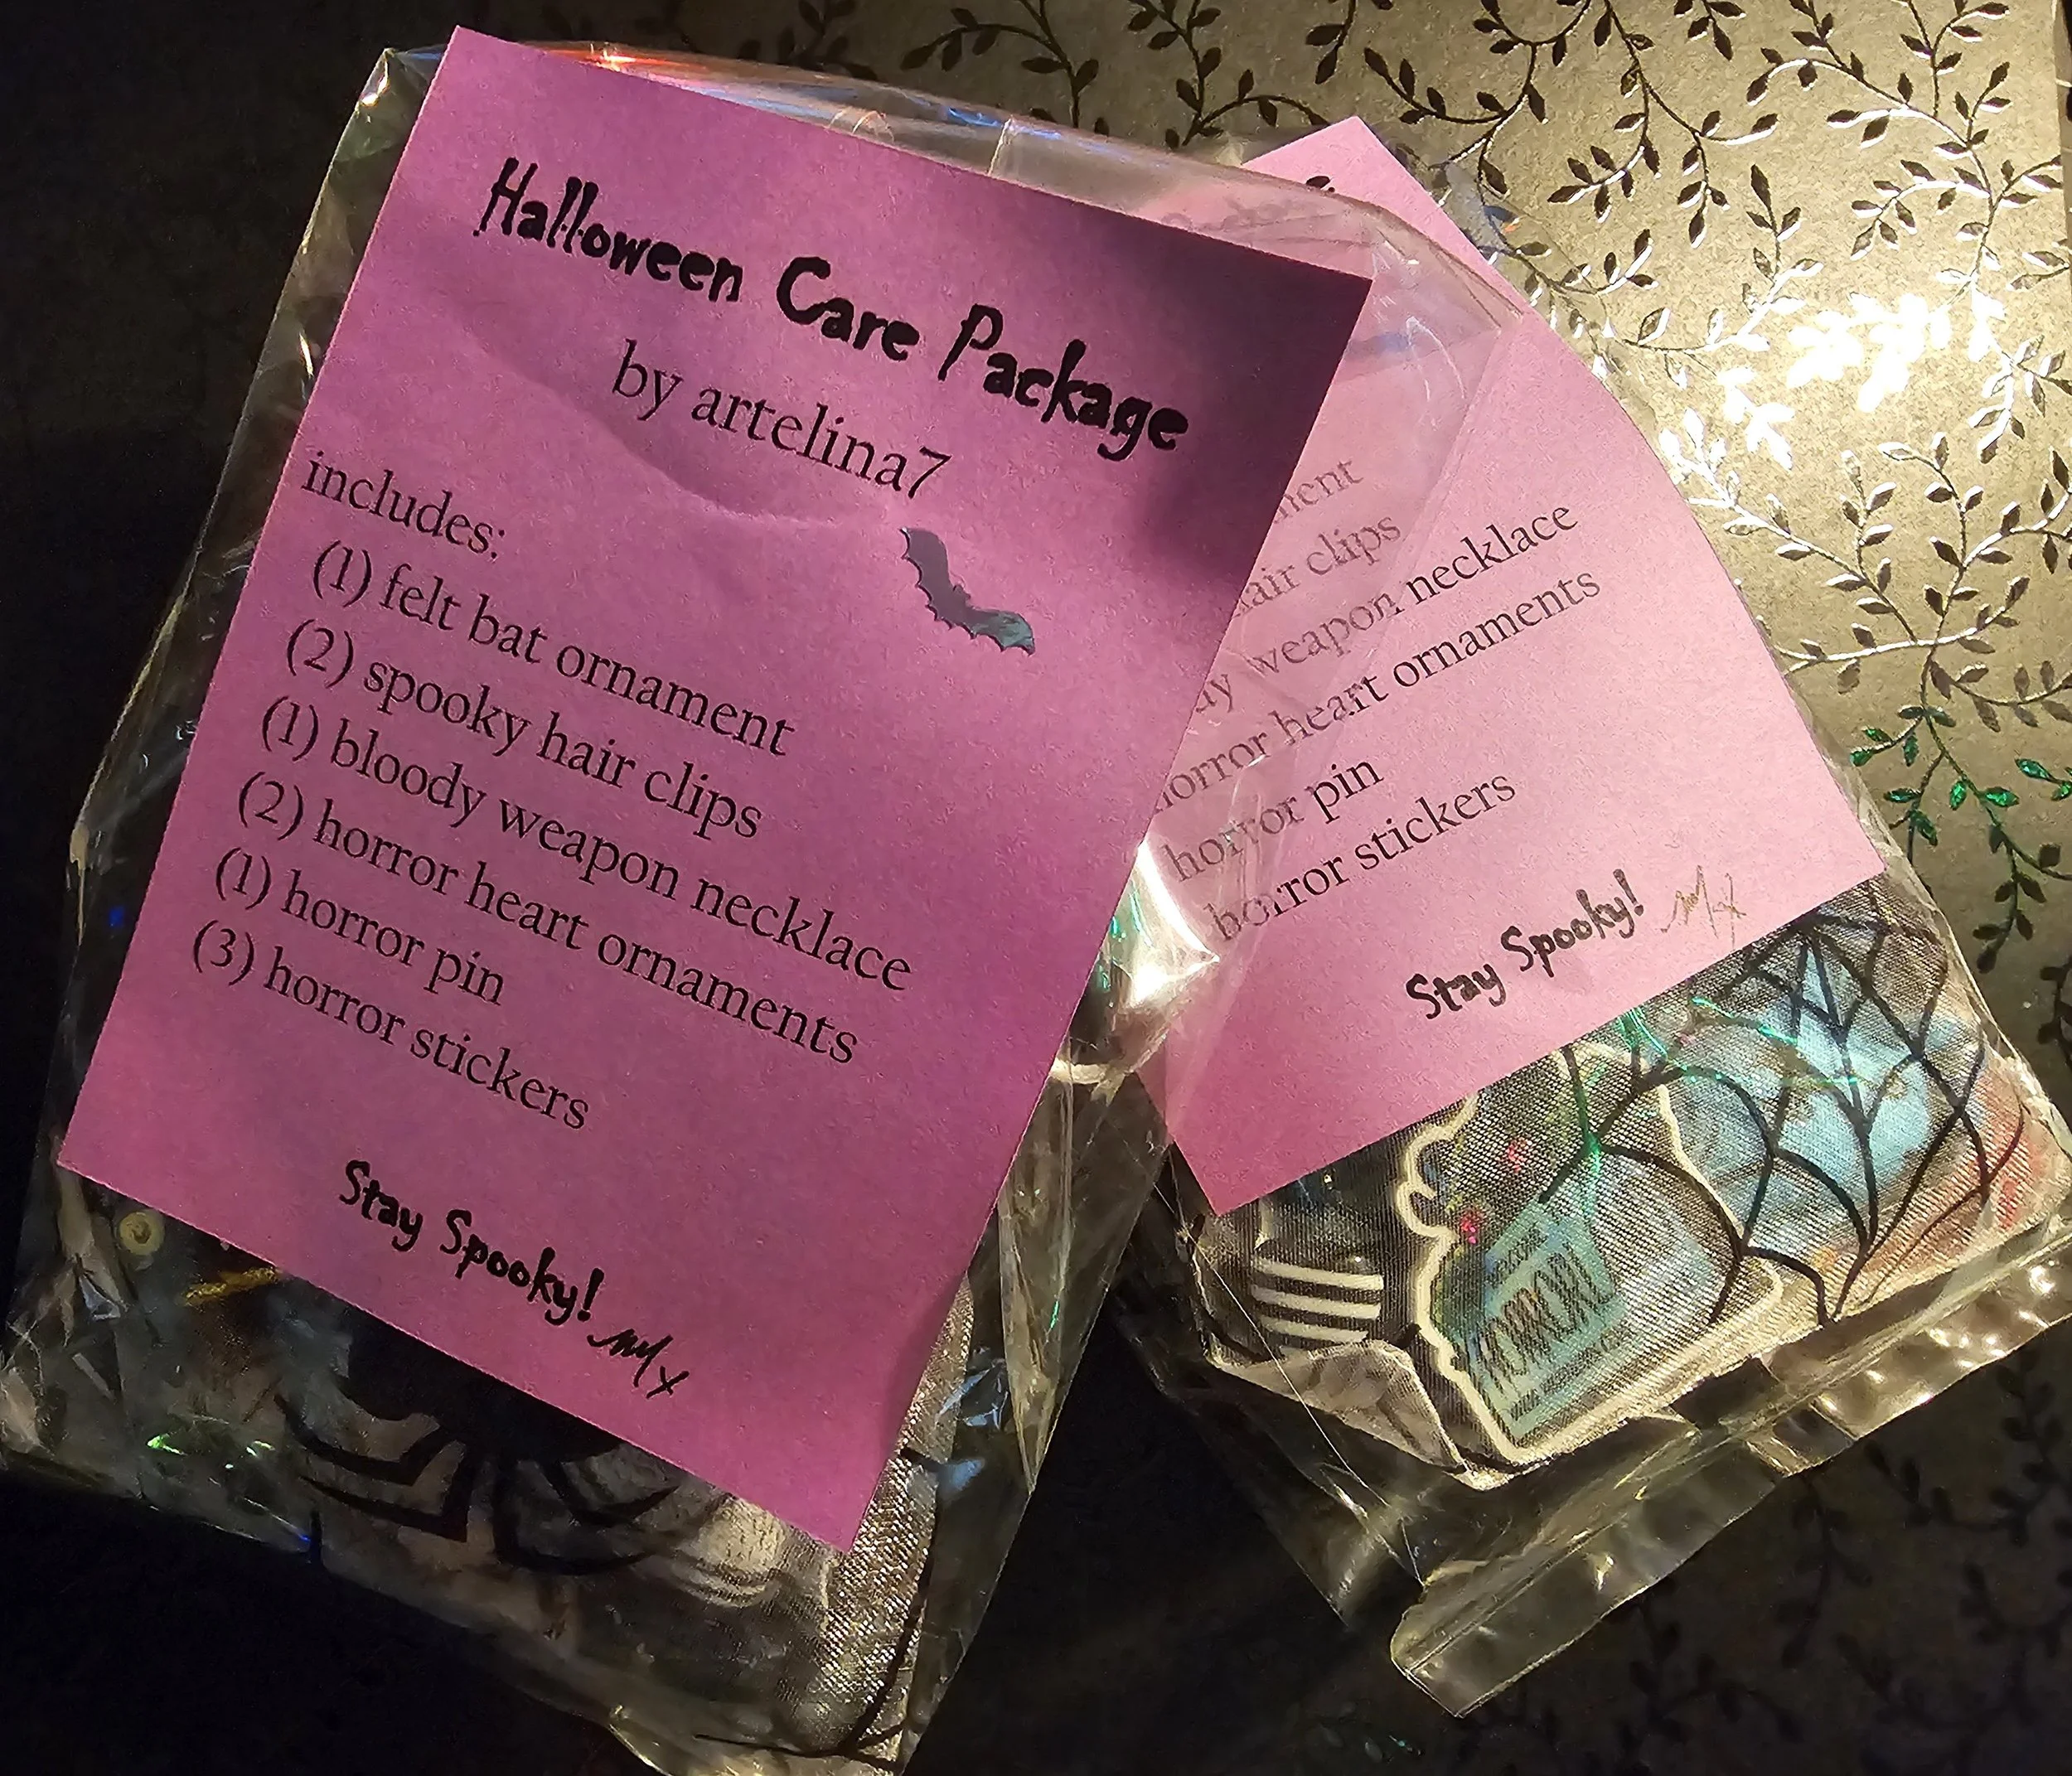 Halloween Care Package
by artelina7
includes:
(1) felt bat ornament
(2) spooky hair clips
(1) bloody weapon necklace
(2) horror heart ornaments
(1) horror pin
(3) horror stickers
Stay Spooky!
clips
weapon necklace
horror heart ornaments
horror pin
horror stickers
Stay Spooky!
HORROR